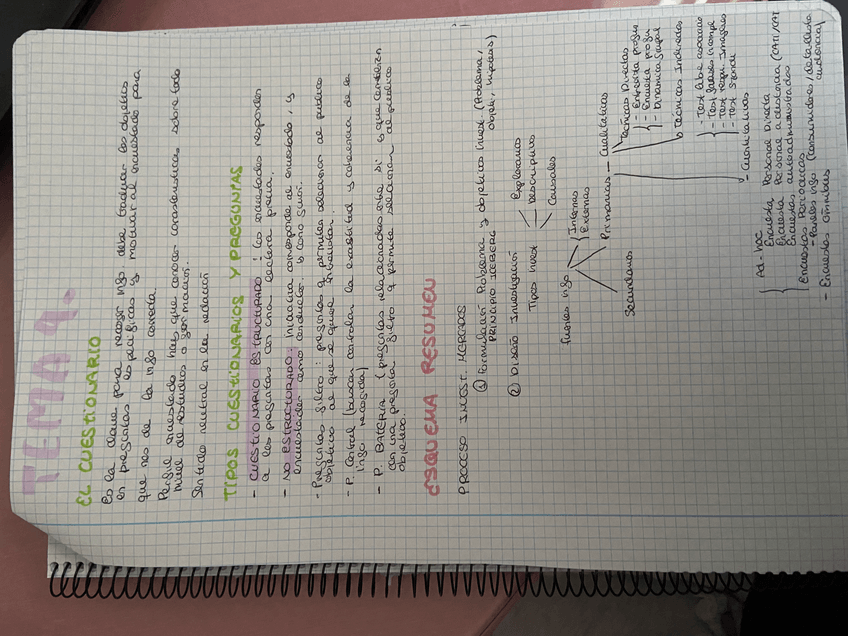 TEMA 9.
EL CUESTIONARIO
Es la clave para recoger info debe traducir los objetivos
en preguntas específicas y motivar al encuestado para
que nos de la info correcta.
Perfil encuestado hay que conocer características sobre todo
nivel de estudios o formación.
Sentido neutral en la redacción
TIPOS CUESTIONARIOS Y PREGUNTAS
- CUESTIONARIO ESTRUCTURADO: los encuestados responden
a las preguntas con una lectura previa.
- NO ESTRUCTURADO: iniciativa corresponde al encuestado, y
encuestador como conductor o como guía.
- Preguntas filtro: preguntas q permiten seleccionar al público
objetivo al que se quiere entrevistar.
- P. Control (buscan controlar la exactitud y coherencia de la
info recogida)
- P. BATERÍA (preguntas relacionadas entre sí o que comienzan
con una pregunta filtro q permite seleccionar al público
objetivo.
ESQUEMA RESUMEN
PROCESO INVEST. MERCADOS
① Formulación Problema y objetivos invest (Problema,
PRINCIPIO ICEBERG objeti, hipótesis)
② Diseño Investigación
Tipos invest
Exploratorios
Descriptivos
Causales
Fuentes info
Internas
Externas
Secundarias
Primarias — Cualitativas
Técnicas Directas
- Entrevista profun
- Encuesta profun
- Dinámica Grupal
Técnicas Indirectas
- Test libre asociación
- Test frases incomple
- Test respu. Imágenes
- Test
- Cuantitativas
Ad-hoc
Encuesta Personal Directa
Encuesta Personal a distancia (CATI/CAT
Encuestas autoadministradas
Encuestas Periódicas
- Paneles info (consumidores/detallista
audiencia)
- Encuestas ómnibus